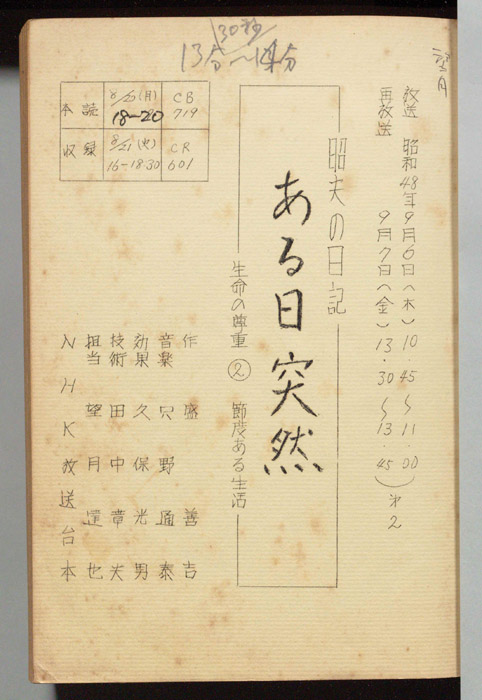 30秒
13分〜14分
望月
放送 昭和48年9月6日(木) 10.45〜11.00
再放送 9月7日(金) 13.30〜13.45
第2
昭夫の日記
ある日突然
生命の尊重 ② 節度ある生活
本読 8/20(月) 18-20 CB 719
収録 8/21(火) 16-18.30 CR 601
作 盛善吉
音楽 穴野通泰
効果 久保光男
技術 田中章夫
担当 望月達也
NHK放送台本